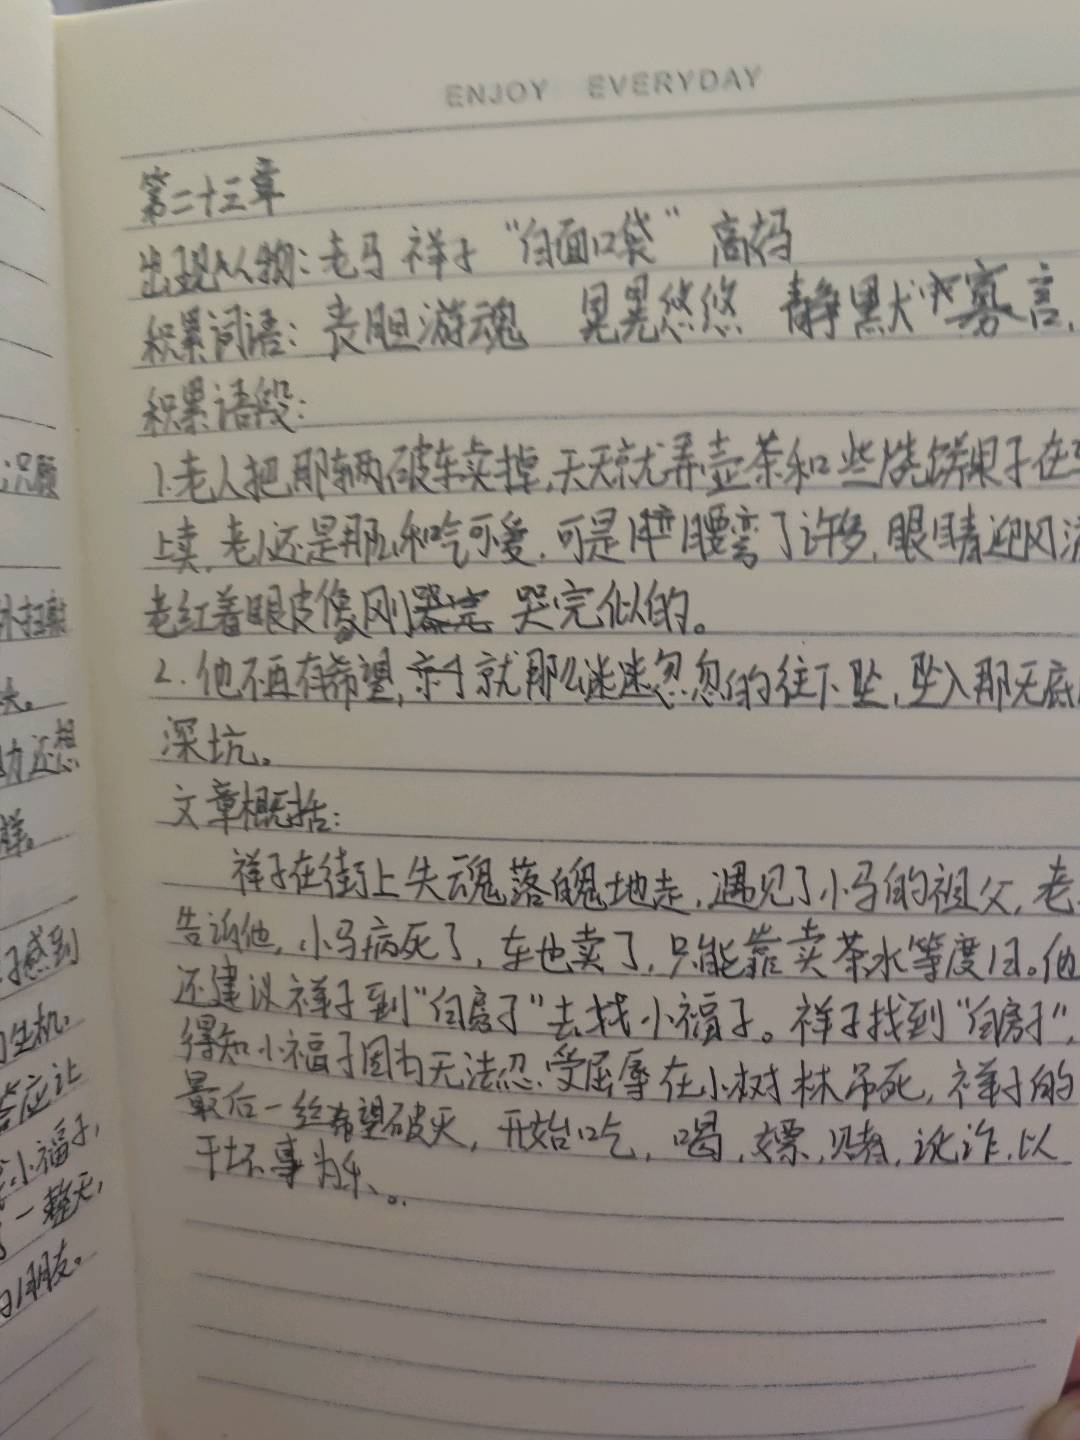 ENJOY EVERYDAY
第二十三章
出现人物：老马 祥子 “白面口袋” 高妈
积累词语：丧胆游魂 晃晃悠悠 静默寡言，
积累语段：
1.老人把那辆破车卖掉，天天就弄壶茶和些烧饼果子在
上卖，老人还是那么和吃可爱，可是 腰弯了许多，眼睛迎风
老红着眼皮像刚 哭完似的。
2.他不再有希望， 就那么迷迷忽忽的往下坠，坠入那无底
深坑。
文章概括：
祥子在街上失魂落魄地走，遇见了小马的祖父，老
告诉他，小马病死了，车也卖了，只能靠卖茶水等度日。他
还建议祥子到“白房子”去找小福子。祥子找到“白房子”，
得知小福子因为无法忍受屈辱在小树林吊死，祥子的
最后一丝希望破灭，开始吃，喝，嫖，赌，讹诈，以
干坏事为乐。
况顾
力还想
样。
子感到
生机。
答应让
小福子，
一整天，
朋友。